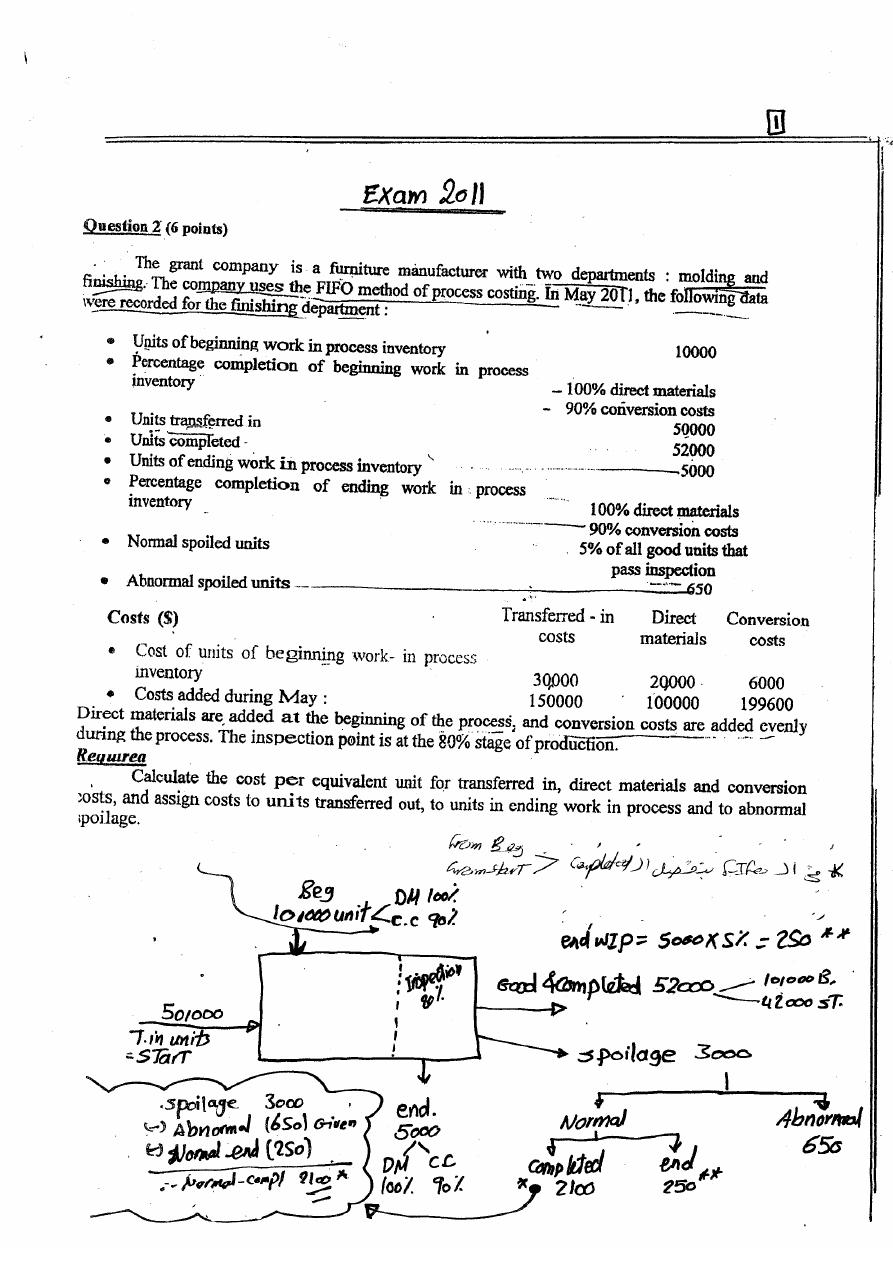 1
Exam 2011
Question 2 (6 points)
The grant company is a furniture manufacturer with two departments : molding and
finishing. The company uses the FIFO method of process costing. In May 2011, the following data
were recorded for the finishing department :
• Units of beginning work in process inventory 10000
• Percentage completion of beginning work in process
inventory – 100% direct materials
– 90% conversion costs
• Units transferred in 50000
• Units completed - 52000
• Units of ending work in process inventory 5000
• Percentage completion of ending work in process
inventory 100% direct materials
90% conversion costs
• Normal spoiled units 5% of all good units that
pass inspection
• Abnormal spoiled units 650
Costs ($) Transferred - in Direct Conversion
costs materials costs
• Cost of units of beginning work- in process
inventory 30,000 20,000 6000
• Costs added during May : 150000 100000 199600
Direct materials are added at the beginning of the process, and conversion costs are added evenly
during the process. The inspection point is at the 80% stage of production.
Required
Calculate the cost per equivalent unit for transferred in, direct materials and conversion
costs, and assign costs to units transferred out, to units in ending work in process and to abnormal
spoilage.
from Beg
from start > Completed ال FIFO ال *
Beg DM 100%
10,000 unit < C.C 90%
end WIP = 5000 X 5% = 250 **
Inspection
80%
Good & Completed 52000 10,000 B.
42000 ST.
50,000
T.in units
= START
spoilage 3000
spoilage 3000
(-) Abnormal (650) Given
(-) Normal-end (250)
∴ Normal-Compl 2100 *
end.
5000
DM C.C
100% 90%
Normal Abnormal
650
Completed end
* 2100 250 **